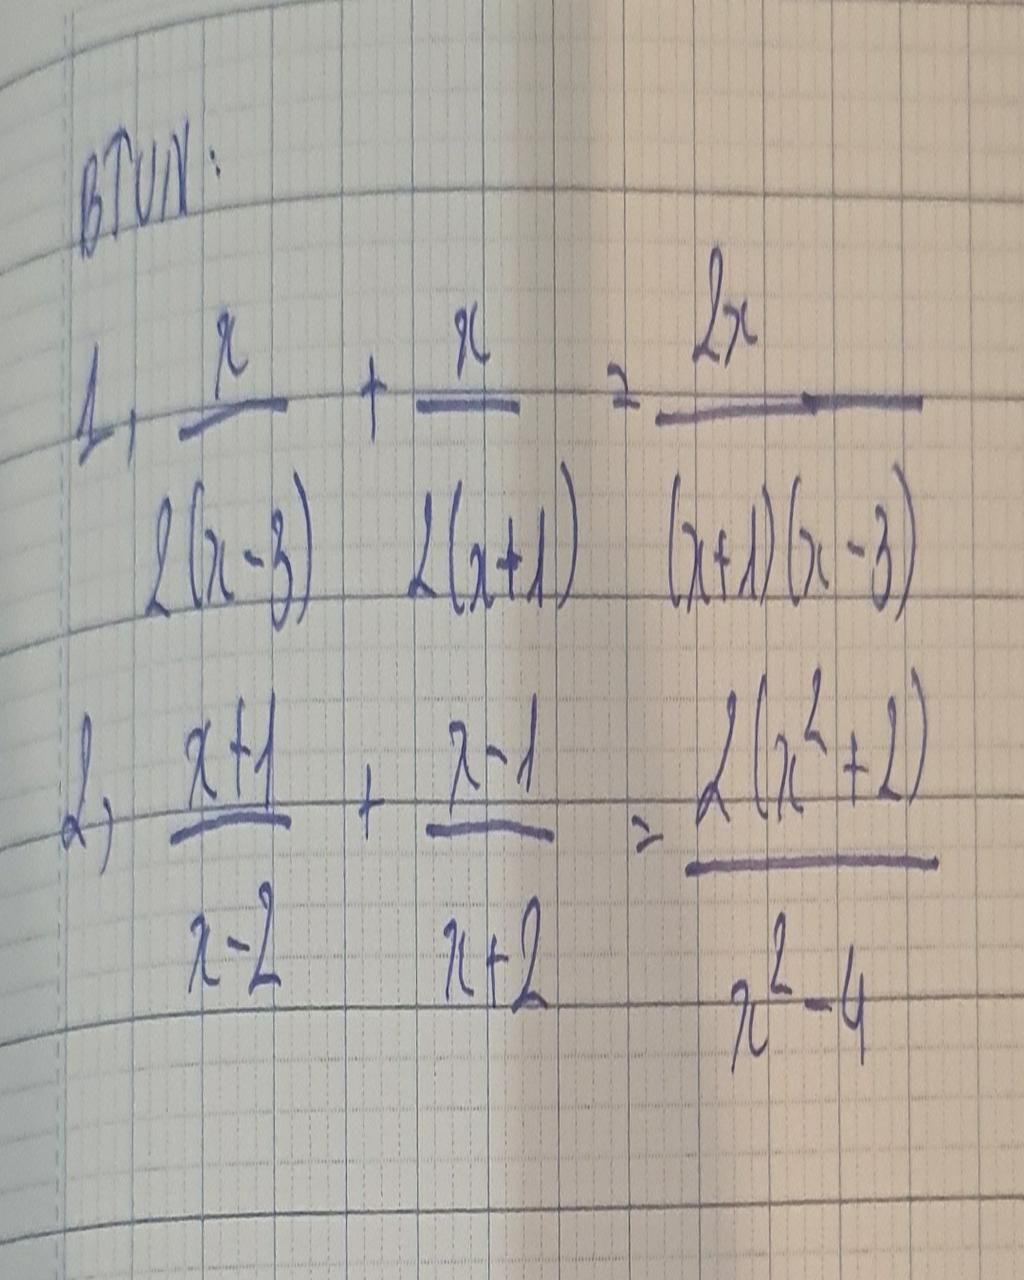 BTVN:
1, x/2(x-3) + x/2(x+1) = 2x/(x+1)(x-3)
2, x+1/x-2 + x-1/x+2 = 2(x²+2)/x²-4